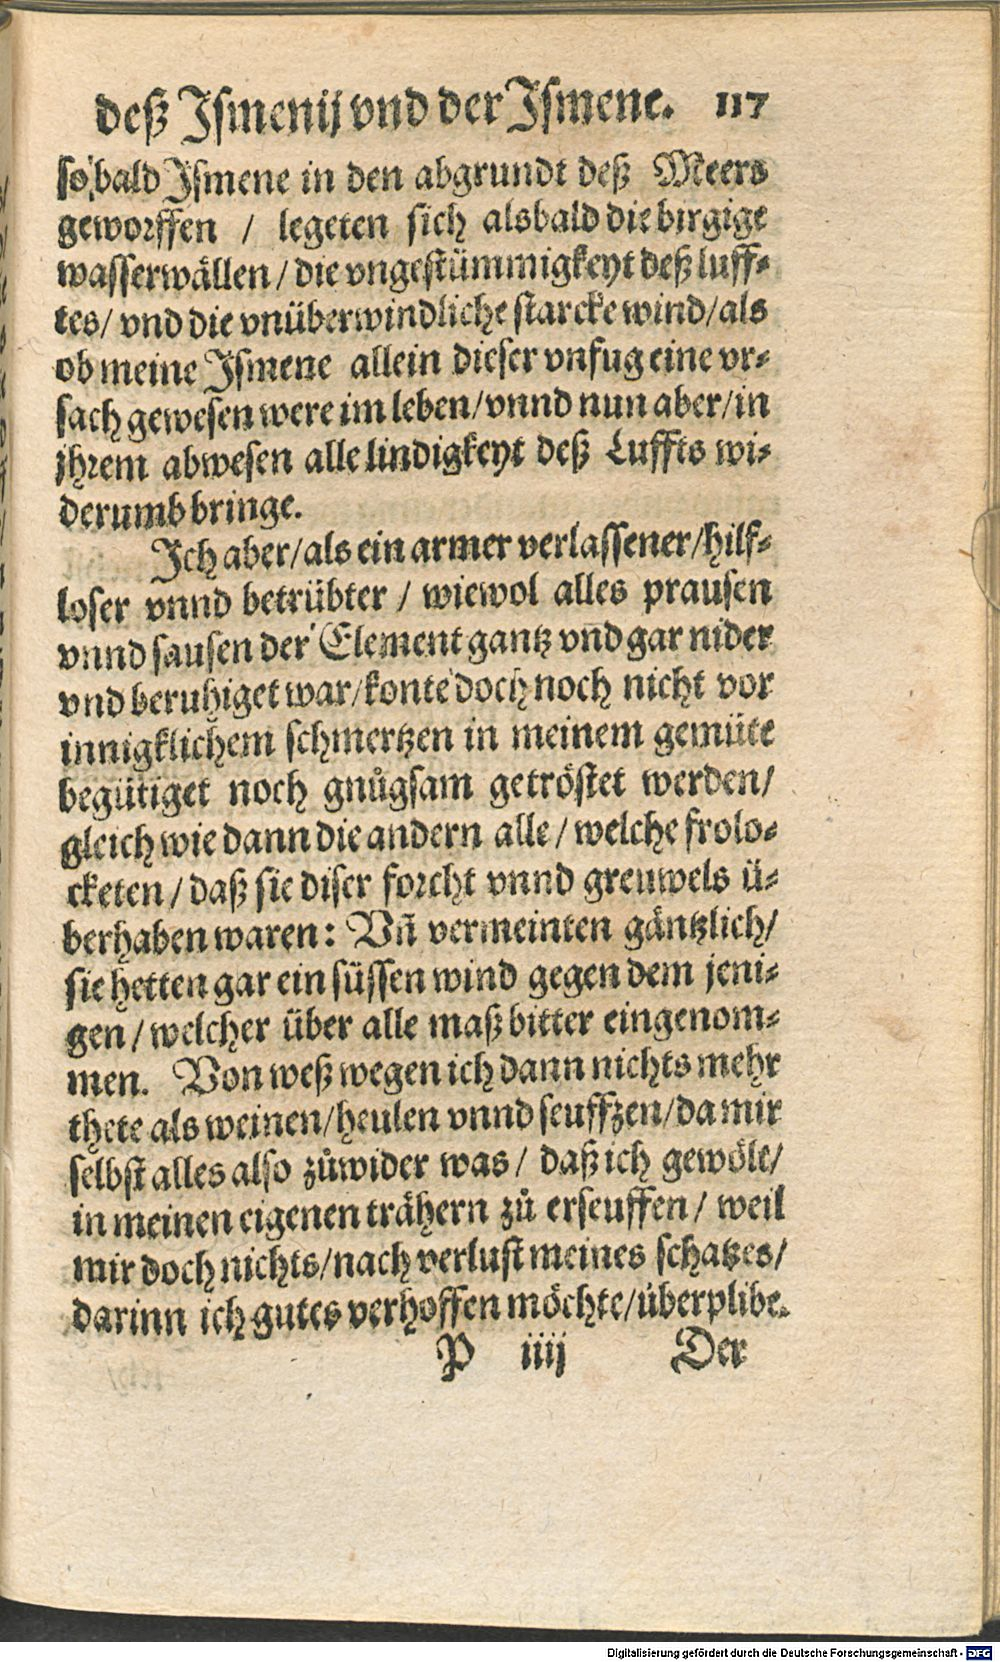 deß Ismenij vnd der Ismene. 117
so bald Ismene in den abgrundt deß Meers
geworffen / legeten sich alsbald die birgige
wasserwällen / die vngestümmigkeyt deß luff-
tes / vnd die vnüberwindliche starcke wind / als
ob meine Ismene allein dieser vnfug eine vr-
sach gewesen were im leben / vnnd nun aber / in
jhrem abwesen alle lindigkeyt deß Luffts wi-
derumb bringe.
Ich aber / als ein armer verlassener / hilf-
loser vnnd betrübter / wiewol alles prausen
vnnd sausen der Element gantz vnd gar nider
vnd beruhiget war / konte doch noch nicht vor
innigklichem schmertzen in meinem gemüte
begütiget noch gnůgsam getröstet werden /
gleich wie dann die andern alle / welche frolo-
cketen / daß sie diser forcht vnnd greuwels ü-
berhaben waren: Vñ vermeinten gäntzlich /
sie hetten gar ein süssen wind gegen dem jeni-
gen / welcher über alle maß bitter eingenom-
men. Von weß wegen ich dann nichts mehr
thete als weinen / heulen vnnd seuffzen / da mir
selbst alles also zůwider was / daß ich gewöle /
in meinen eigenen trähern zů erseuffen / weil
mir doch nichts / nach verlust meines schatzes /
darinn ich gutes verhoffen möchte / überplibe.
P iiij Der
Digitalisierung gefördert durch die Deutsche Forschungsgemeinschaft - DFG